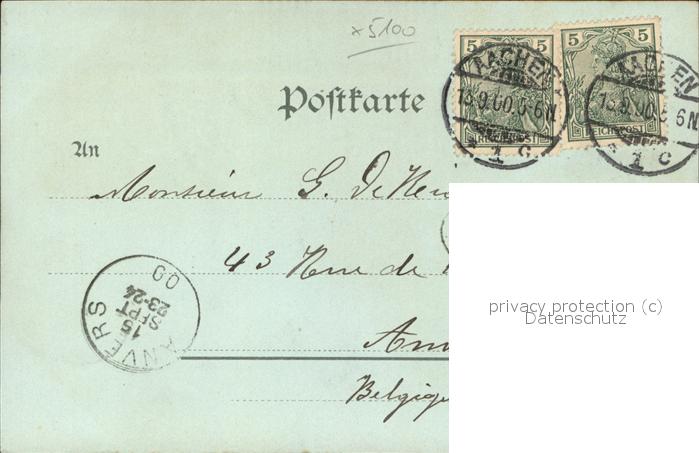 x5100
5 5 5 5
REICHSPOST REICHSPOST
AACHEN
13.9.00.5-6N
1 c
AACHEN
13.9.00.5 6N
1 c
Postkarte
An
Monsieur G.
43 Rue de
Belgique
ANVERS
15
SEPT
23-24
00
privacy protection (c)
Datenschutz